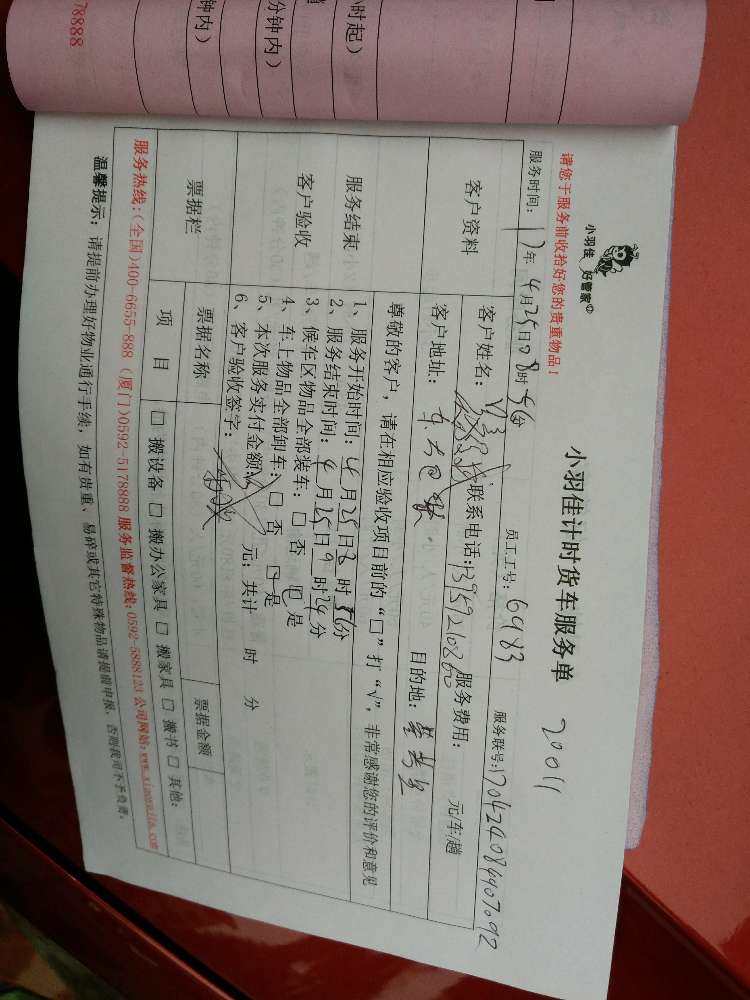 小羽佳 好管家
小羽佳计时货车服务单 20011
请您于服务前收拾好您的贵重物品!
服务时间: 17年 4月25日08时56分 员工工号: 6983 服务联号:
客户资料
客户姓名: 联系电话: 服务费用: 元/车/趟
客户地址: 目的地:
服务结束
客户验收
尊敬的客户,请在相应验收项目前的“□”打“√”,非常感谢您的评价和意见
1、服务开始时间: 4月25日8时56分
2、服务结束时间: 4月25日9时24分
3、候车区物品全部装车: □ 否 □ 是
4、车上物品全部卸车: □ 否 □ 是
5、本次服务实付金额: 元; 共计 时 分
6、客户验收签字:
票据栏
票据名称 票据金额
项 目 □ 搬设备 □ 搬办公家具 □ 搬家具 □ 搬书 □ 其他:
服务热线:(全国)400-6655-888 (厦门)0592-5178888 服务监督热线:0592-5888123 公司网站:www.xiaoyujia.com
温馨提示: 请提前办理好物业通行手续,如有贵重、易碎或其它特殊物品请提前申报,否则我司不予负责。
时起)
分钟内)
钟内)
78888